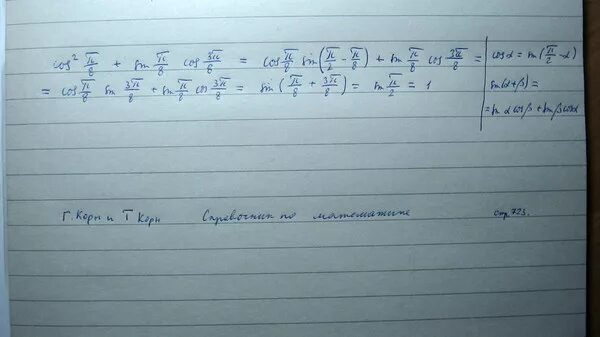 cos² π/8 + sin π/8 cos 3π/8 = cos π/8 sin(π/2 - π/8) + sin π/8 cos 3π/8 =
= cos π/8 sin 3π/8 + sin π/8 cos 3π/8 = sin(π/8 + 3π/8) = sin π/2 = 1
cos α = sin(π/2 - α)
sin(α+β) =
= sin α cos β + sin β cos α
Г. Корн и Т Корн Справочник по математике стр. 725.